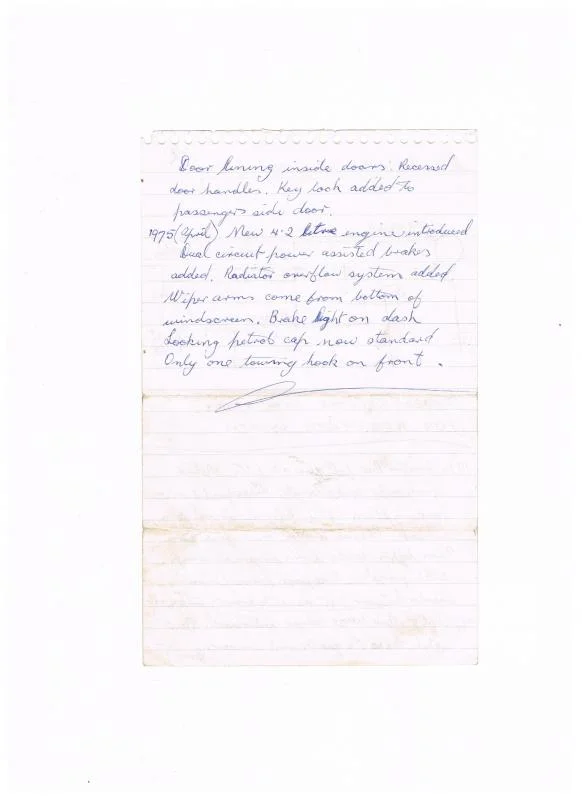 Door lining inside doors. Recessed
door handles. Key lock added to
passengers side door.
1975 (April) New 4.2 litre engine introduced
Dual circuit power assisted brakes
added. Radiator overflow system added.
Wiper arms come from bottom of
windscreen. Brake light on dash
Locking petrol cap now standard
Only one towing hook on front.